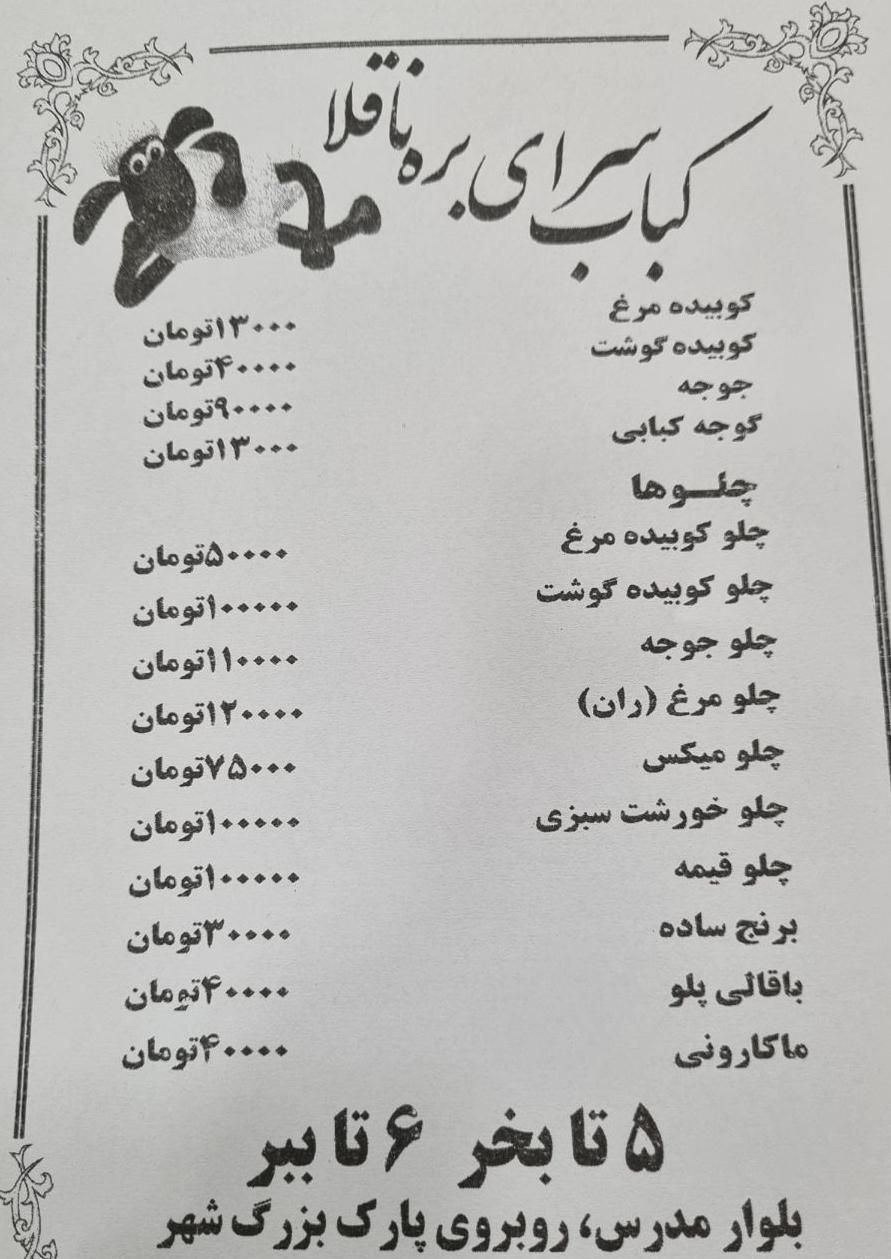 کباب سرای بره ناقلا
کوبیده مرغ ۱۳۰۰۰تومان
کوبیده گوشت ۴۰۰۰۰تومان
جوجه ۹۰۰۰۰تومان
گوجه کبابی ۱۳۰۰۰تومان
چلــوها
چلو کوبیده مرغ ۵۰۰۰۰تومان
چلو کوبیده گوشت ۱۰۰۰۰۰تومان
چلو جوجه ۱۱۰۰۰۰تومان
چلو مرغ (ران) ۱۲۰۰۰۰تومان
چلو میکس ۷۵۰۰۰تومان
چلو خورشت سبزی ۱۰۰۰۰۰تومان
چلو قیمه ۱۰۰۰۰۰تومان
برنج ساده ۳۰۰۰۰تومان
باقالی پلو ۴۰۰۰۰تومان
ماکارونی ۴۰۰۰۰تومان
۵ تا بخر ۶ تا ببر
بلوار مدرس، روبروی پارک بزرگ شهر